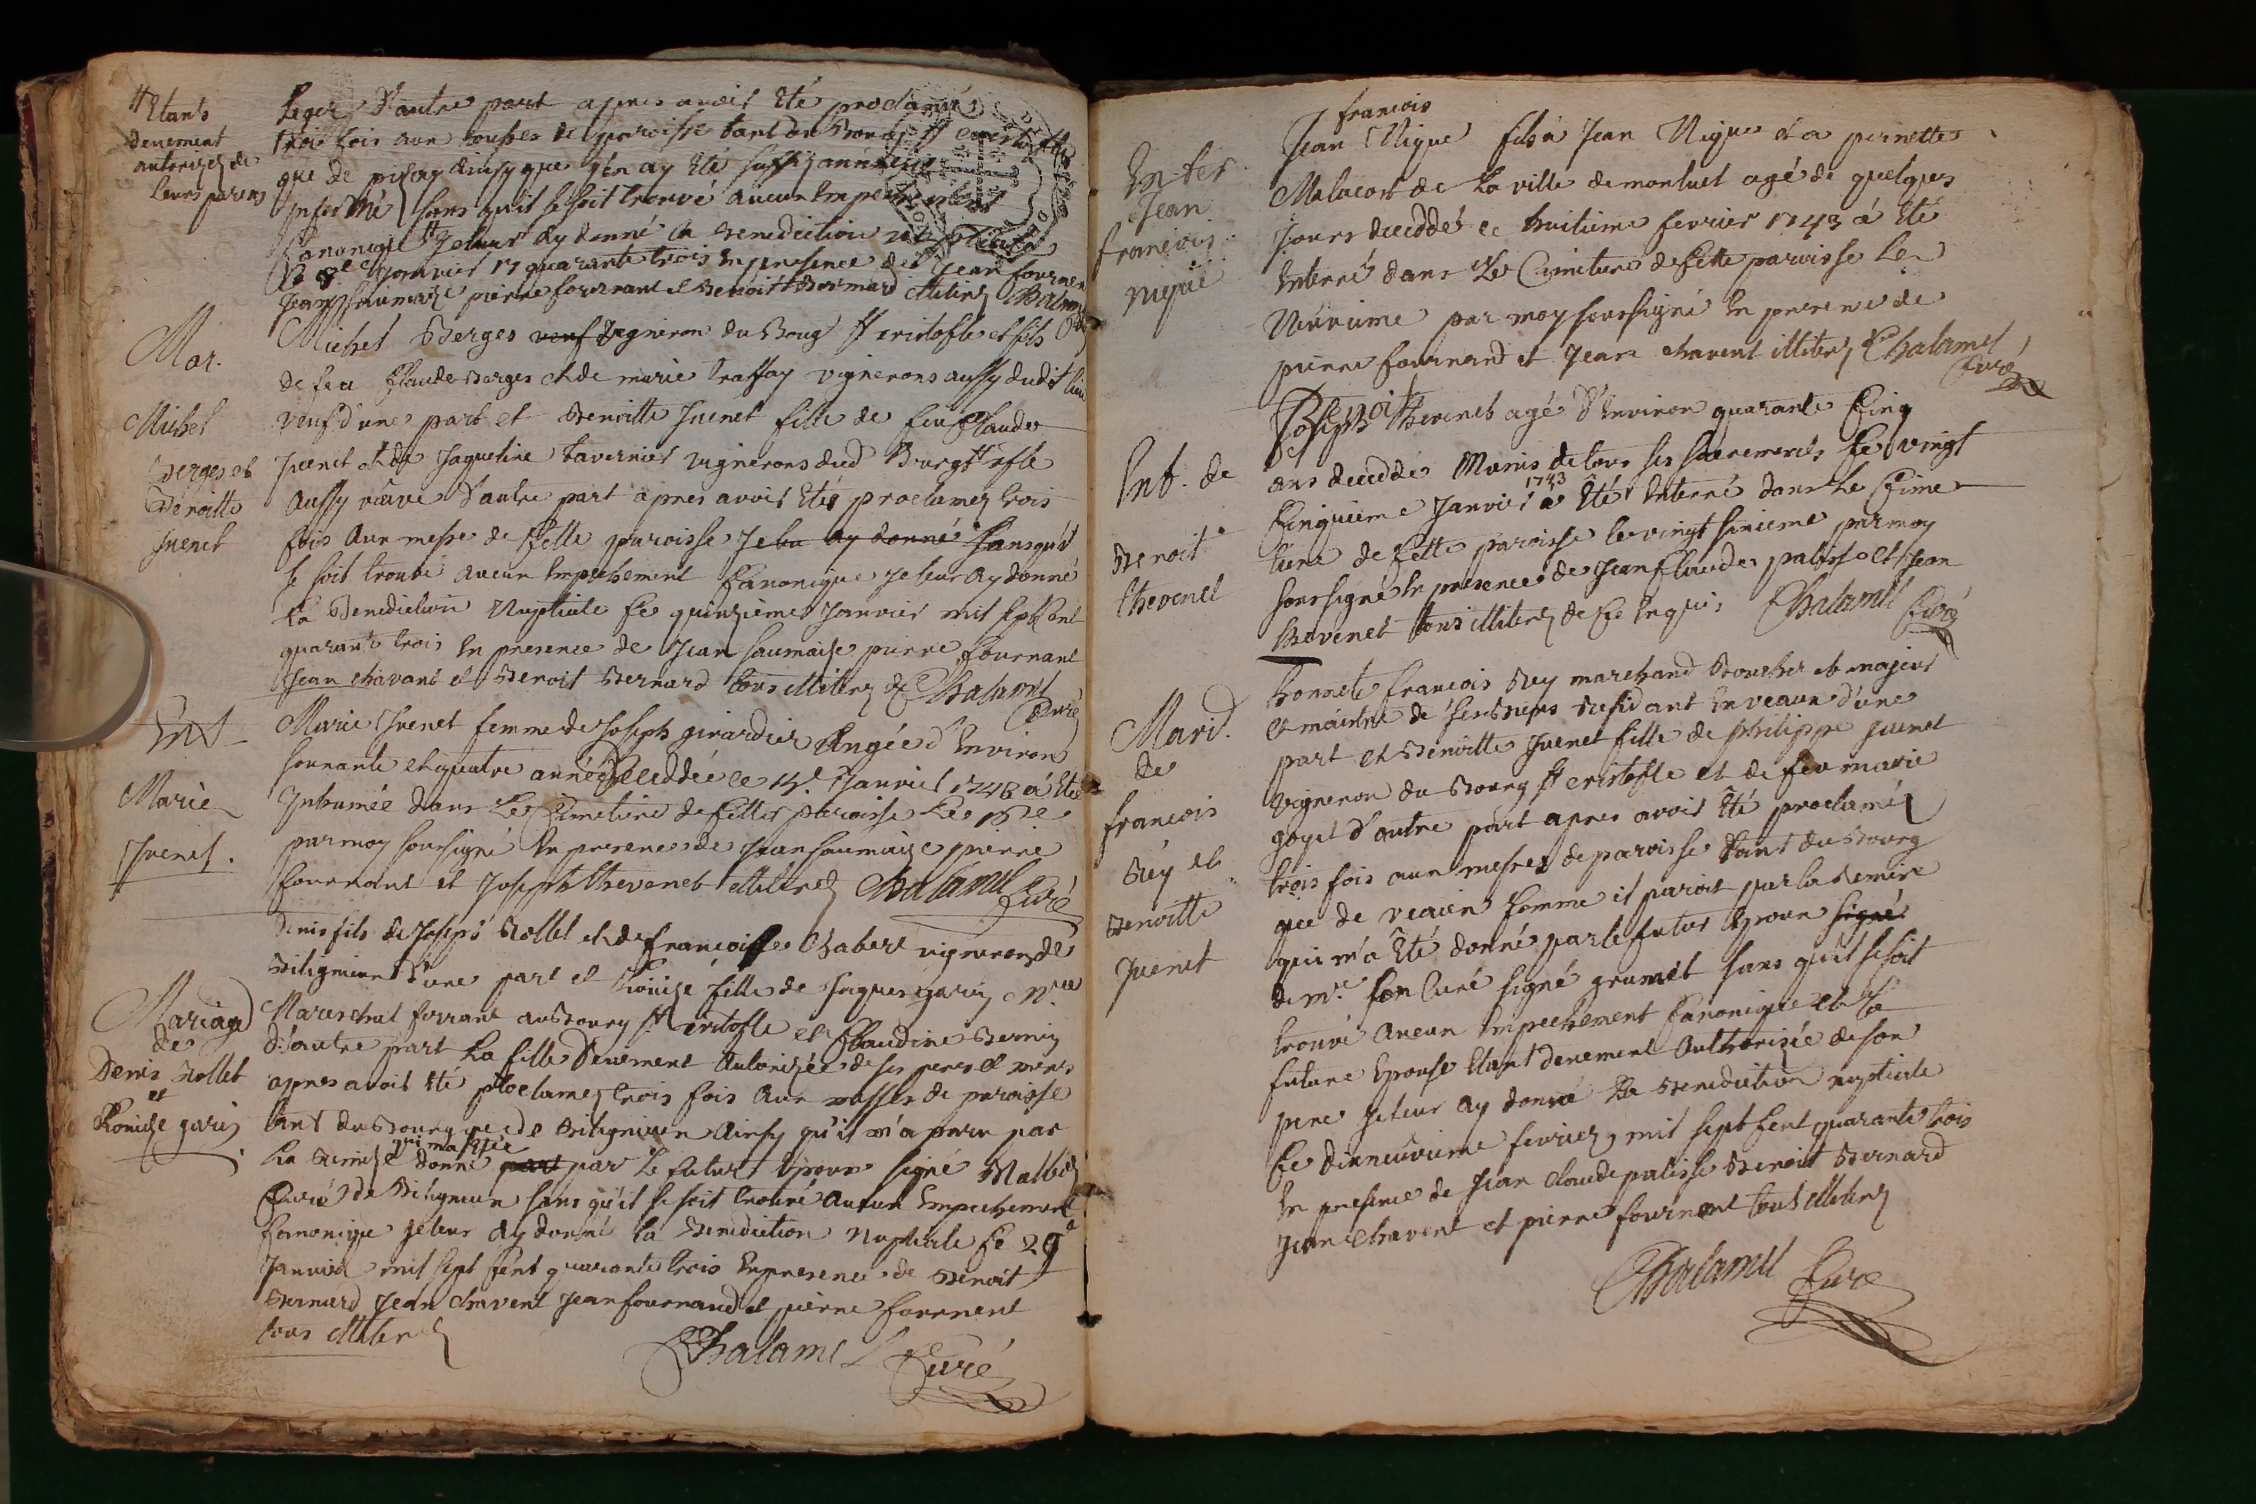 # Etants
denement
autorizés de
leurs parens
Leger d'autre part apres avoir Eté proclamés
trois fois aux messes de paroisse tant du Bourg st cristofle
que de pizay ainsy que j'en ay Eté suffizanment
informé sans qu'il se soit trouvé aucun Impechement
Canonique # Je leur ay donné la Benediction nuptiale
janvier 17 quarante trois En presence de Jean fournan
Jean saumaize pierre fournant et Benoit Bernard illiterez Chalamel
Mar.
Michel
Berges et
Benoitte
Juenet
Michel Berges veuf vigneron du Boug st cristofle et fils
de feu Claude Berges et de marie traffay vignerons aussy dudit lieu
veuf d'une part et Benoitte Juenet fille de feu Claude
Juenet et de Jaqueline tavernier vignerons dud Burg st cfle
aussy vauve d'autre part apres avoir Etés proclamez trois
fois aux messe de Cette paroisse Je leu ay donné sans qu'il
se soit trouvé aucun Impechement Canonique je leur ay donné
la Benediction Nuptiale Ce quinzieme Janvier mil sept Cent
quarante trois En presence de Jean saumaize pierre fournant
Jean chavant et Benoit Bernard tous illiterez Chalamel
Curé
Ent
Marie
Juenet.
Marie Juenet femme de Joseph girardier Angée d'Environ
sonnante et quatre années Deceddée le 15e Janvier 1743 a Eté
Inhumée dans Le Cimetiere de Cettes paroisse Le 16e
par moy soussigné En presence de Jean saumaize pierre
fournant et Joseph thevenet illiterez Chalamel Curé
Mariage
de
Denis Rollet
et
Louize garin
Denis fils de Joseph Rollet et de francoisse Chabert vignerons de
Biligneux d'une part et Louize fille de Jaques garin Mtre
Mareschal ferrant au Bourg st cristofle et Claudine Bernin
d'autre part La fille Denement Autorizée de ses pere et mere
apres avoir Eté proclamez trois fois Aux messes de paroisse
tant du Bourg que de Biligneux Ainsy qu'il m'a paru par
la Remize qui ma Etée donné part par Le futur Epoux signé Malbez
Curé de Biligneux sans qu'il se soit trouvé Aucun Impechement
Canonique je leur Ay donné la Benediction Nuptiale Ce 29e
Janvier mil sept Cent quarante trois En presence de Benoit
Bernard Jean Chavent Jean fournand et pierre fournent
tous illiterez
Chalamel Curé
Enter
Jean
francois
nique
francois
Jean Nique fils a Jean Nique et a pernette
Malacort de La ville de montluel agé de quelques
jours deceddé le huitieme fevrier 1743 a Eté
Enterré dans Le Cimetiere de Cette paroisse Le
Neuvieme par moy soussigné En presence de
pierre fournand et Jean chavent illiterez Chalamel
Curé
Ent. de
Benoit
thevenet
Benoit
Joseph thevenet agé d'Environ quarante Cinq
ans deceddé Munis de tous ses sacrements Le vingt
Cinquieme Janvier 1743 a Eté Enterré dans Le Cime
tiere de Cette paroisse Le vingt sixieme par moy
soussigné En presence de Jean Claude palisse et Jean
thevenet tous illiterez de Ce Enquis Chalamel Curé
Marid.
de
francois
Rey et
Benoitte
Juenet
honnete francois Rey marchand Boucher et majeur
et maistre de ses Biens Residant En veaux d'une
part et Benoitte Juenet fille de Philippe Juenet
vigneron du Bourg st cristofle et de feu marie
goyet d'autre part apres avoir Eté proclamez
trois fois aux messes de paroisse tant du Bourg
que de veaux Comme il paroit par la Remise
qui m'a Eté donné par le futur Epoux signé
de mr. son Curé signé grumet sans qu'il se soit
trouvé Aucun Impechement Canonique et la
future Epouse Etant denement Authorizée de son
pere je leur ay donné La Benediction nuptiale
Ce dixneuvieme fevrier mil sept Cent quarante trois
En presence de Jean claude palisse Benoit Bernard
Jean Chavent et pierre fournent tous illiterez
Chalamel Curé